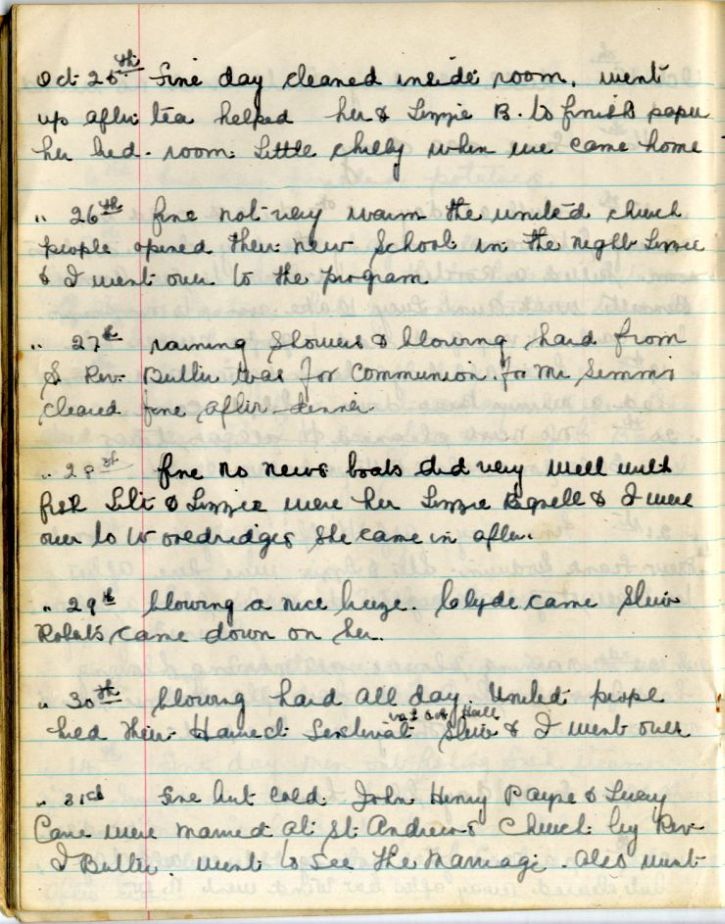 Oct 25th fine day cleaned inside room. went
up after tea helped her & Lizzie B. to finish paper
her bed-room. little chilly when we came home
" 26th fine not very warm the united church
people opened their new School in the night Lizzie
& I went over to the program
" 27th raining Showers & blowing hard from
S Rev. Butler was for Communion. for Mr Simms
cleared fine after dinner
" 28th fine no news boats did very well with
fish & Lizzie were her Lizzie & I were
over to Woodridges she came in after.
" 29th blowing a nice breeze. Clyde came
Roberts came down on her.
" 30th blowing hard all day. United people
hed their Harvest & I went over
" 31st fine but cold. John Henry Payne & Lucy
Cane were married at St. Andrews Church by Rev.
I Butler. went to see the Marriage. also went